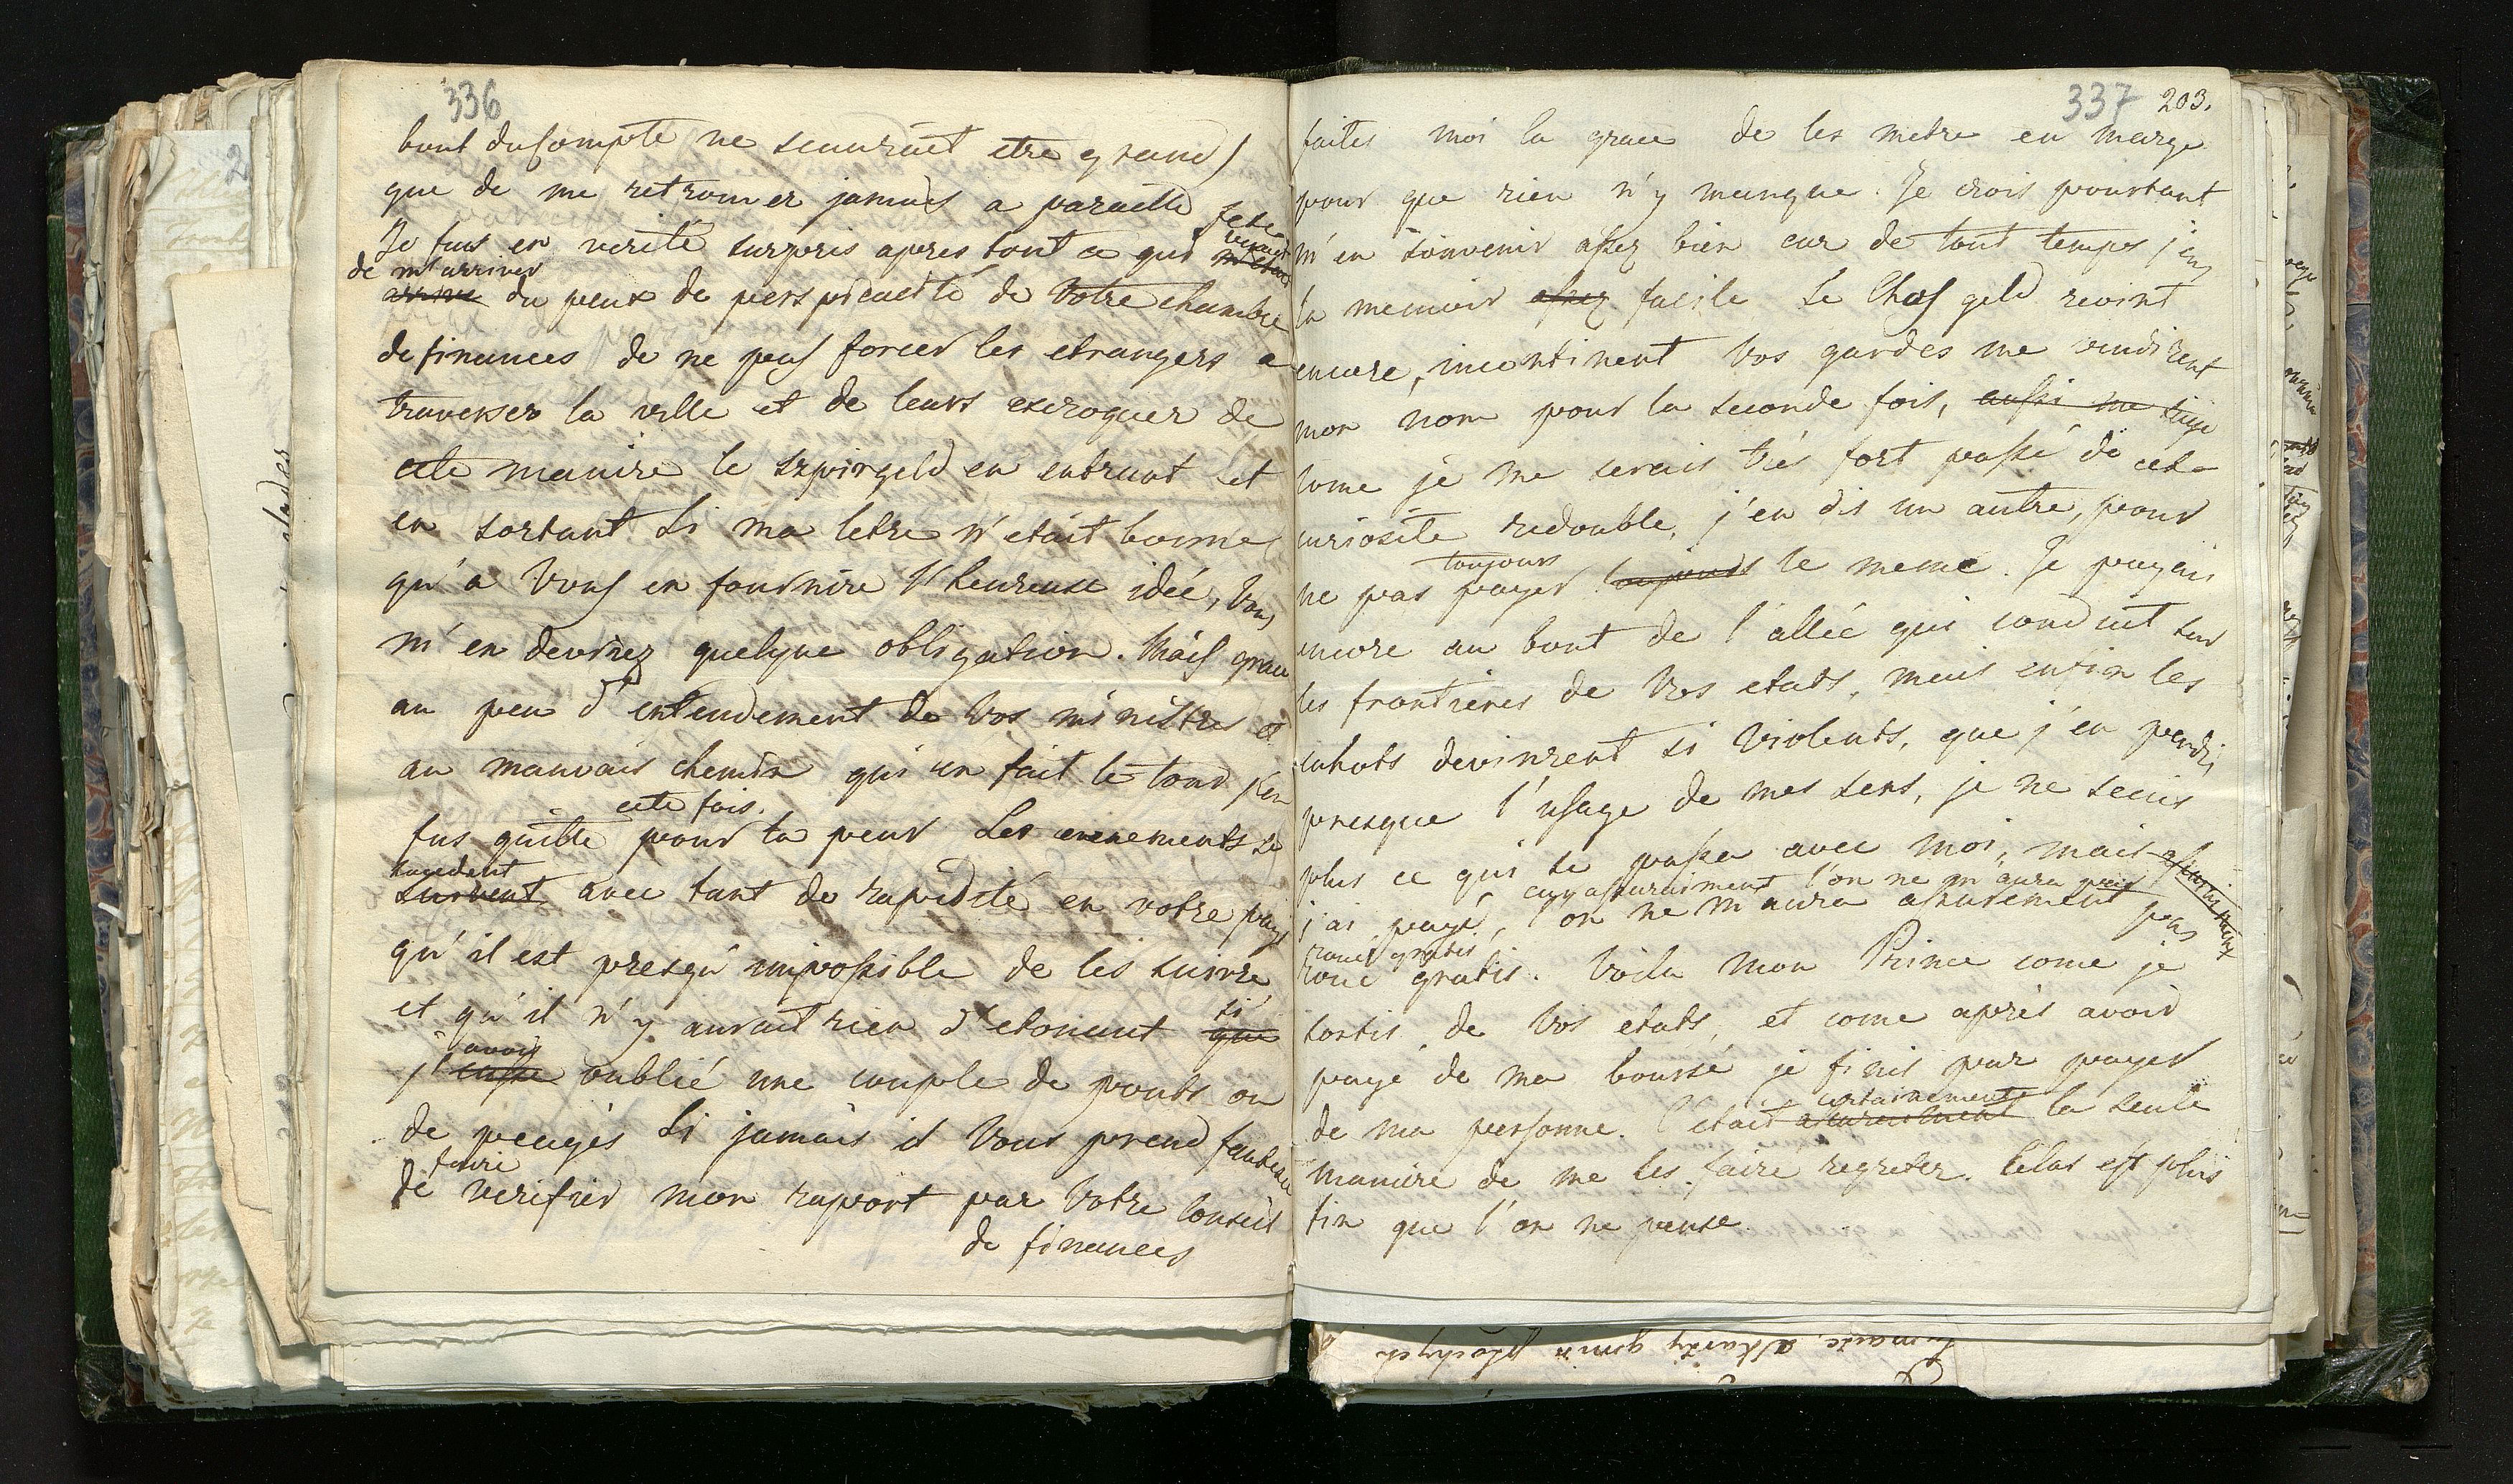 336
bout du compte ne scaurait etre grand
que de me retrouver jamais a paraille fete
Je fus en verité surpris apres tout ce qui venait
de m'arriver
arrivé du peux de perspicacité de Votre chambre
de finances de ne pas forcer les etrangers a
traverser la ville et de leurs escroquer de
cete manire le sperrgeld en entrant et
en sortant Si ma letre n'etait bonne
qu'a Vous en fournire l'heureuse idée, Vous
m'en devriez quelque obligation. Mais grace
au peu d'entendement de Vos ministres et
au mauvais chemin qui en fait le tour j'en
cete fois.
fus quitte pour la peur Les evenements se
succedent
suivent avec tant de rapidité en votre pays
qu'il est presqu'impossible de les suivre
et qu'il n'y aurait rien d'etonant si
que
j'avais
eusse oublié une couple de ponts ou
de peages Si jamais il Vous prend fantaisie
faire
de verifier mon raport par Votre Conseil
de finances
337 203.
faites moi la grace de les metre en marge
pour que rien n'y manque. Je crois pourtant
m'en souvenir assez bien car de tout temps j'eus
la memoir assez facile Le Chas geld revint
encore, incontinent Vos gardes me rendirent
mon nom pour la seconde fois, aussi me
come je me serais trés fort passé de cete
curiosité redouble, j'en dis un autre, pour
toujours
ne pas payer toujours le meme. Je payais
encore au bout de l'allée qui conduit sur
les frontieres de Vos etats, mais enfin les
cahots devinrent si violents, que j'en perdis
presque l'usage de mes sens, je ne scais
plus ce qui se passa avec moi, mais
car assuraiment l'on ne m'aura pas
j'ai payé, l'on ne m'aura assurement pas
roué gratis
roué gratis. Voila mon Prince come je
sortis de Vos etats, et come après avoir
payé de ma bourse je finis par payer
certainement
de ma personne. C'était assuraiment la seule
maniere de me les faire regreter. Cela est plus
fin que l'on ne pense.